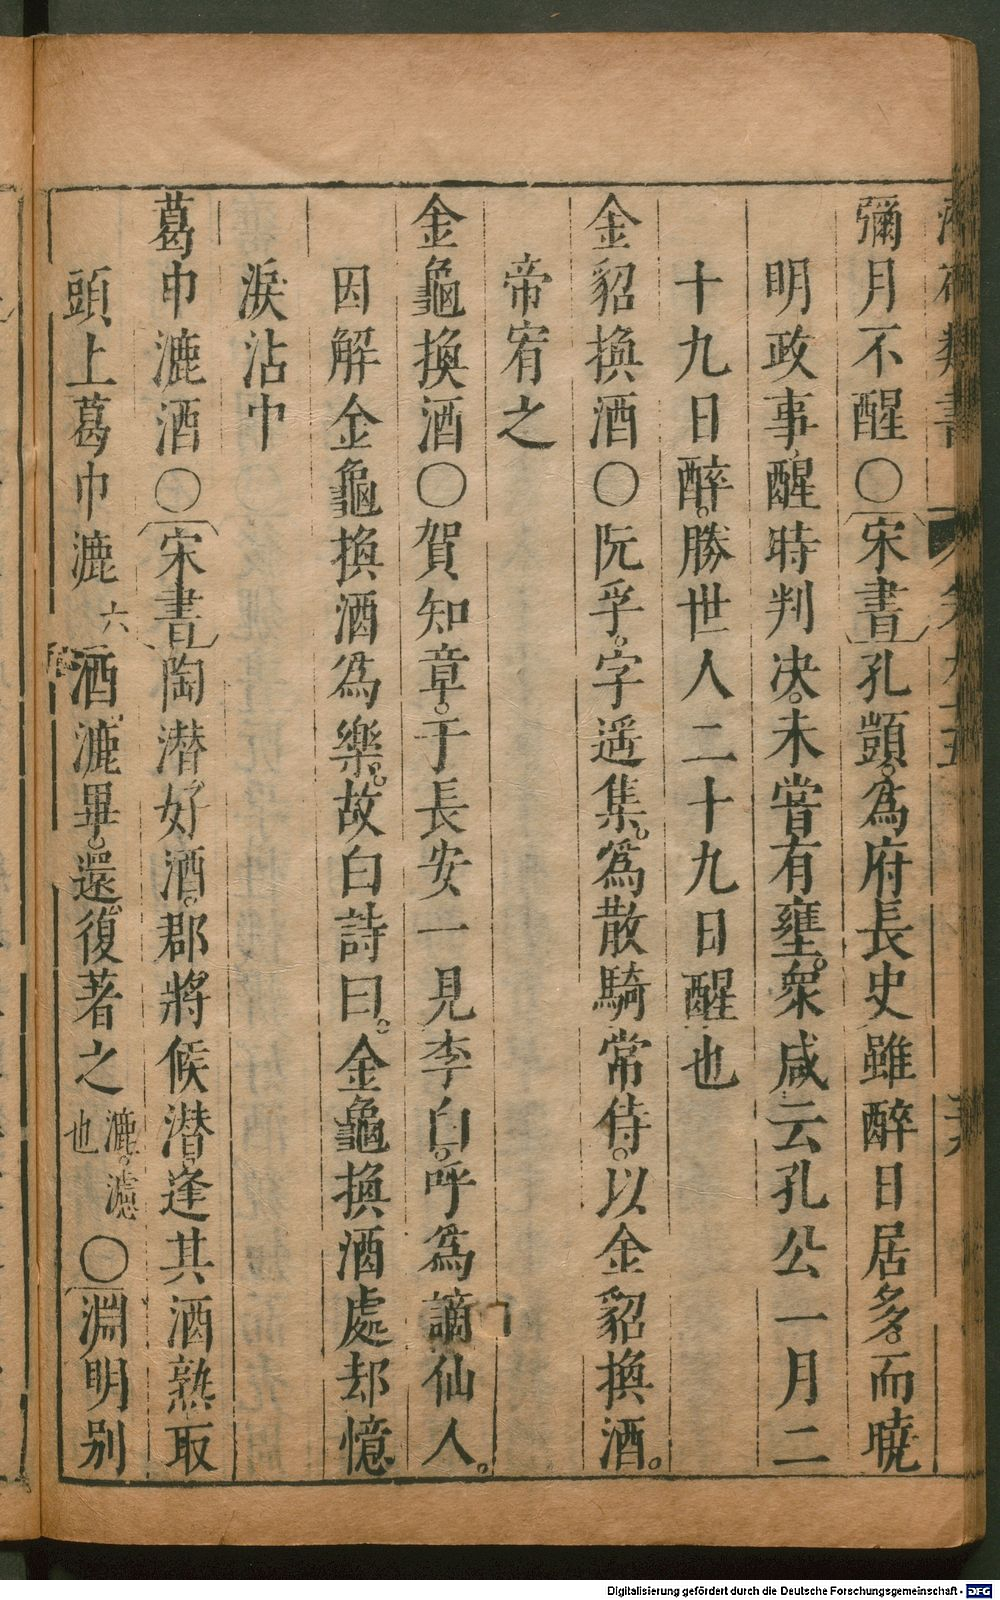 彌月不醒〇宋書孔顗。爲府長史雖醉日居多。而曉
明政事醒時判决。未嘗有壅。衆咸云孔公一月二
十九日醉。勝世人二十九日醒也
金貂換酒〇阮孚。字遥集。爲散騎常侍。以金貂換酒。
帝宥之
金龜換酒〇賀知章。于長安一見李白。呼爲謫仙人。
因解金龜換酒爲樂。故白詩曰。金龜換酒處却憶
淚沾巾
葛巾漉酒〇宋書陶潜好酒。郡將候潜逢其酒熟取
頭上葛巾漉六酒漉畢。還復著之漉。濾也〇淵明别
Digitalisierung gefördert durch die Deutsche Forschungsgemeinschaft - DFG